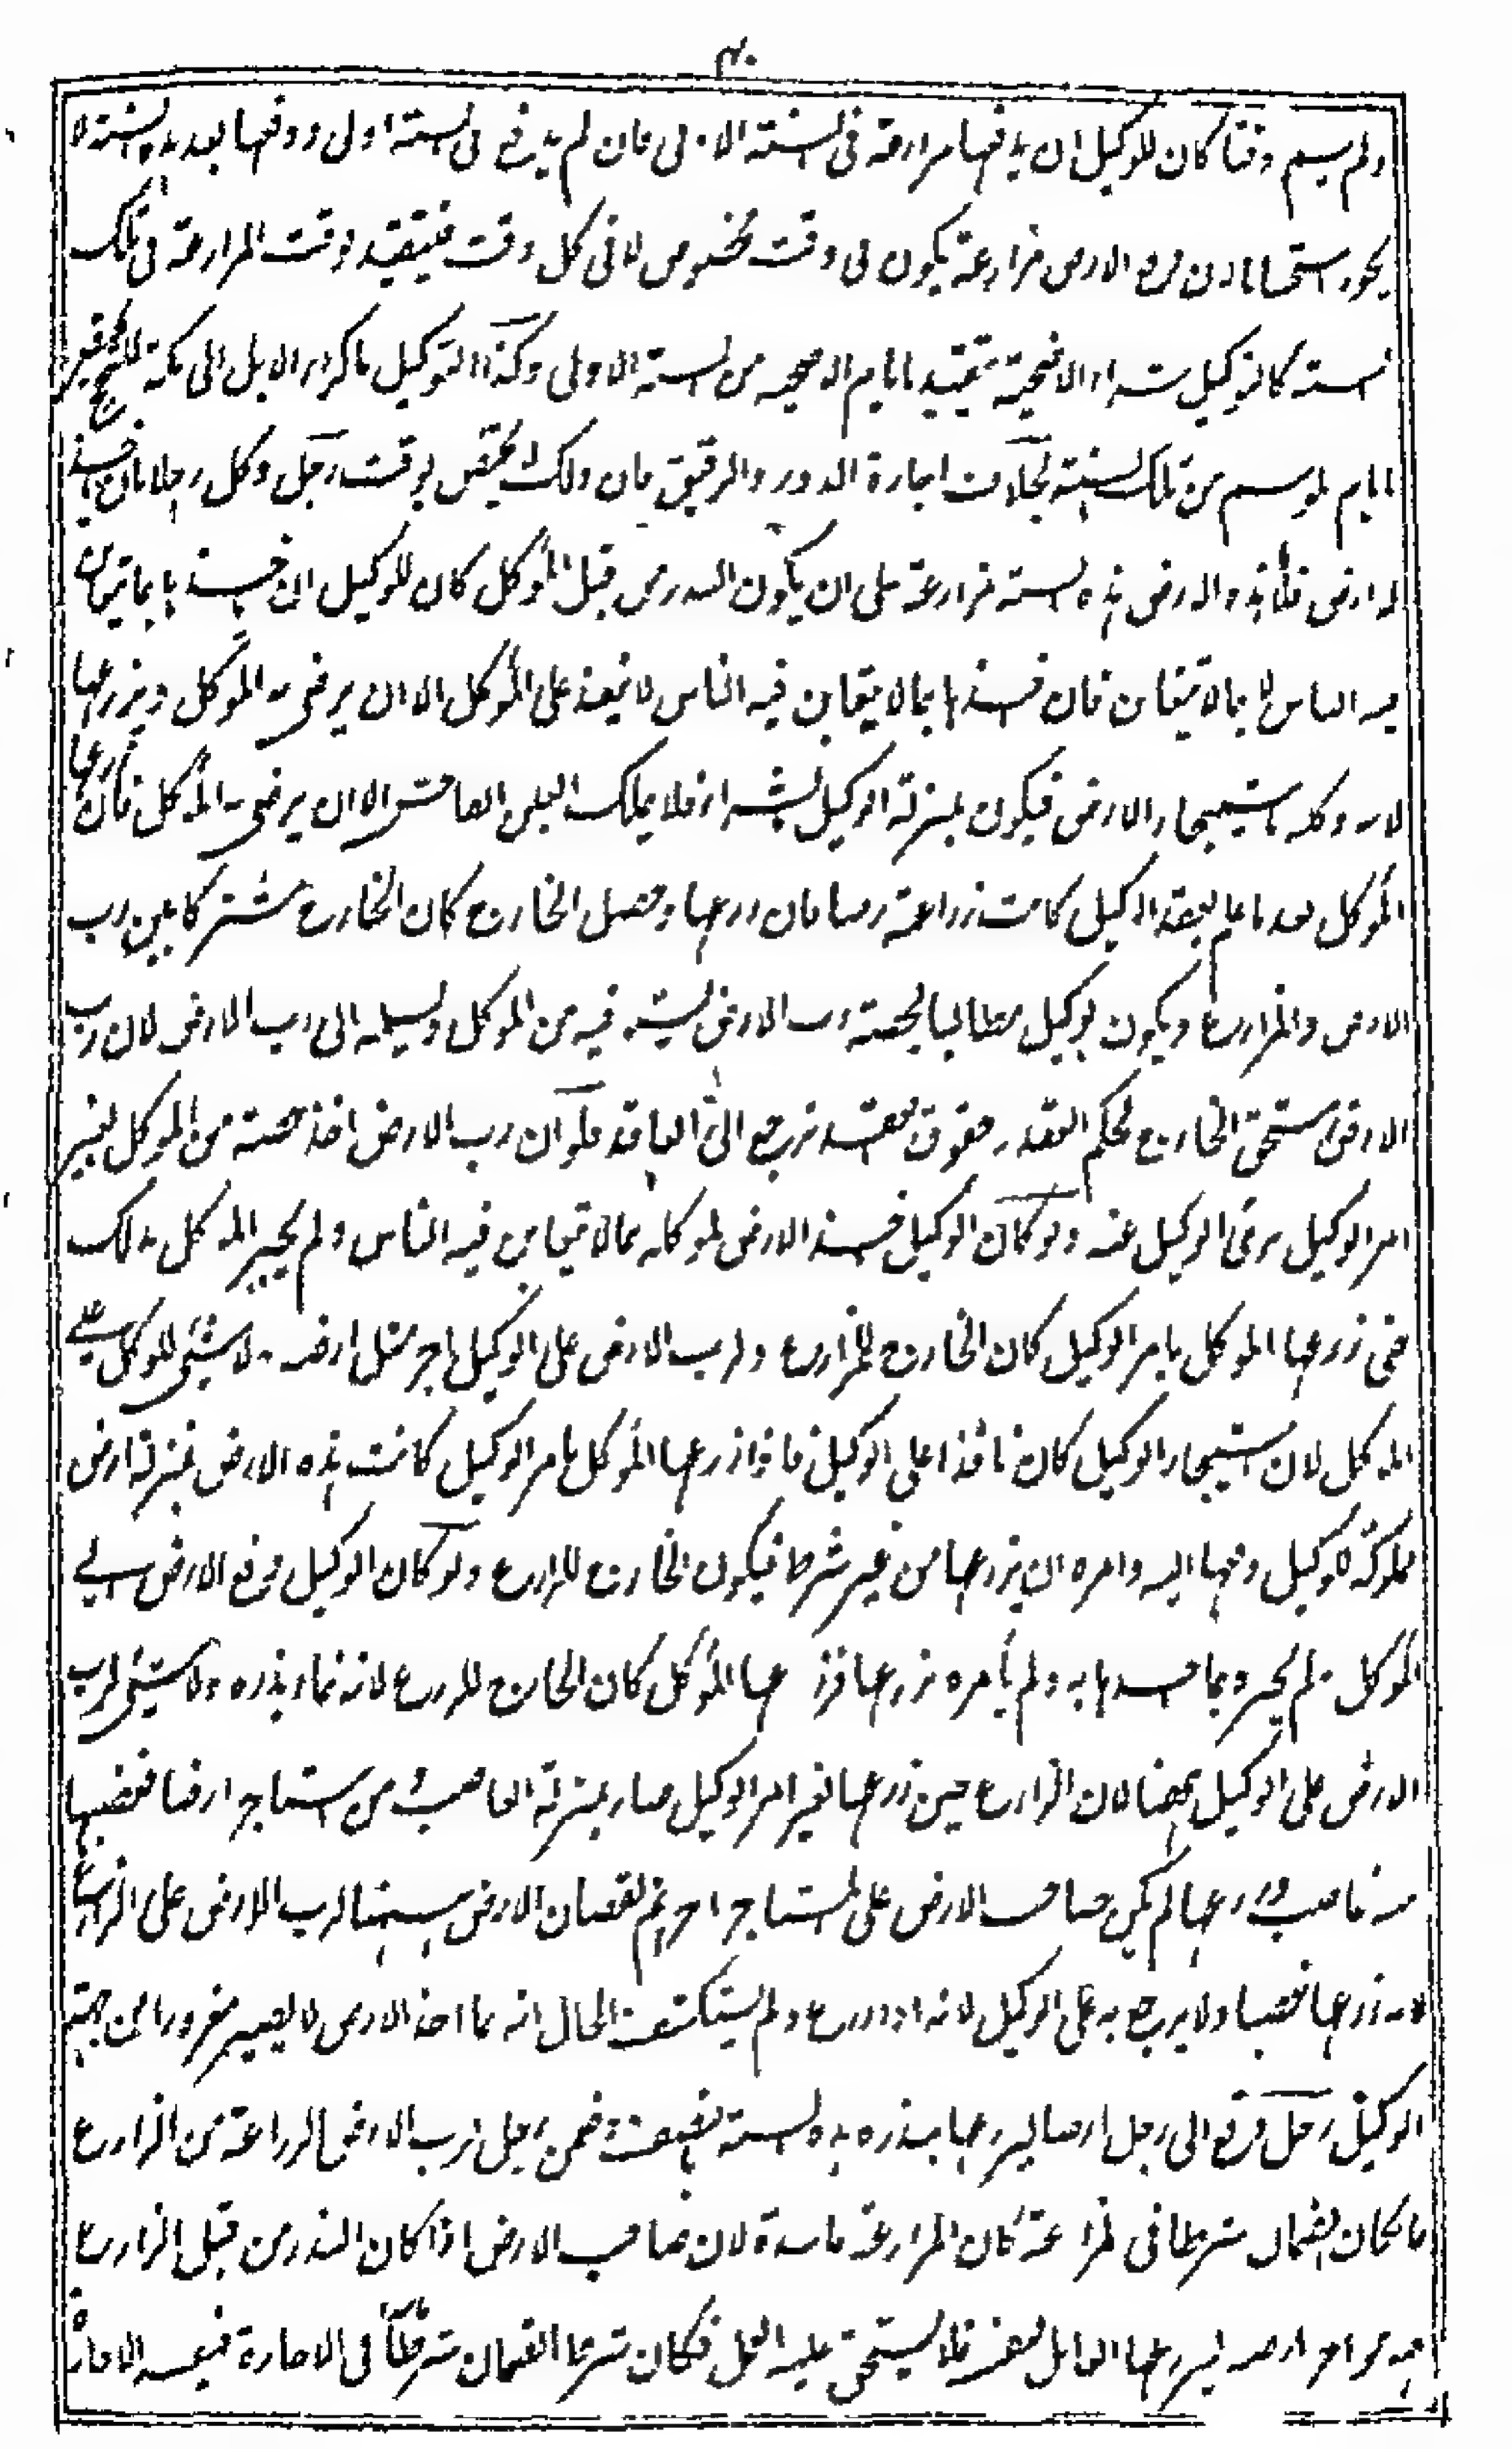 ولم يسم وقتا كان للوكيل ان يدفعها مزارعة فى السنة الاولى فان لم يدفع فى السنة الاولى ودفعها بعد هذه السنة
يجوز استحسانا لان دفع الارض مزارعة يكون فى وقت مخصوص لا فى كل وقت فيتقيد بوقت المزارعة فى تلك
السنة كالتوكيل بشراء الاضحية يتقيد بايام الاضحية من السنة الاولى وكذا التوكيل باكراء الابل الى مكة للحج
بايام الموسم من تلك السنة بخلاف اجارة الدور والرقيق فان ذلك لا يختص بوقت رجل وكل رجلا بان ياخذ
له ارض فلان هذه الارض هذه السنة مزارعة على ان يكون البذر من قبل الموكل كان للوكيل ان ياخذها بما يتغابن
فيه الناس لا بما لا يتغابن فان اخذها بما لا يتغابن فيه الناس لا ينفذ على الموكل الا ان يرضى به الموكل ويزرعها
لانه وكله باستيجار الارض فيكون بمنزلة الوكيل بالشراء فلا يملك الغبن الفاحش الا ان يرضى به الموكل فان زرعها
الموكل بعد ما علم بعقد الوكيل كانت زراعته رضا فان زرعها وحصل الخارج كان الخارج مشتركا بين رب
الارض والمزارع ويكون الوكيل مطالبا بحصة رب الارض يستوفيه من الموكل ويسلمه الى رب الارض لان رب
الارض يستحق الخارج بحكم العقد وحقوق العقد ترجع الى العاقد فلو ان رب الارض اخذ حصته من الموكل بغير
امر الوكيل برئ الوكيل عنه ولو كان الوكيل اخذ الارض لموكله بما لا يتغابن فيه الناس ولم يخبر الموكل بذلك
حتى زرعها الموكل بامر الوكيل كان الخارج للمزارع ولرب الارض على الوكيل اجر مثل ارضه ولا شئ للوكيل على
الموكل لان استيجار الوكيل كان نافذا على الوكيل فاذا زرعها الموكل بامر الوكيل كانت هذه الارض بمنزلة ارض
مملوكة للوكيل دفعها اليه وامره ان يزرعها من غير شرط فيكون الخارج للزارع ولو كان الوكيل دفع الارض الى
الموكل ولم يخبره بما اخذها به ولم يأمره بزرعها فزرعها الموكل كان الخارج للزارع لانه نماء بذره ولا شئ لرب
الارض على الوكيل ههنا لان الزارع حين زرعها بغير امر الوكيل صار بمنزلة الغاصب ومن استاجر ارضا فغصبها
منه غاصب وزرعها لم يكن لصاحب الارض على المستاجر اجر ثم نقصان الارض ههنا لرب الارض على الزارع
لانه زرعها غصبا ولا يرجع به على الوكيل لانه اذا زرع ولم يستكشف الحال انه بما اخذ الارض لا يصير مغرورا من جهة
الوكيل رجل دفع الى رجل ارضا ليزرعها ببذره هذه السنة بالنصف وضمن رجل لرب الارض الزراعة من الزارع
فان كان الضمان شرطا فى المزارعة كان المزارعة فاسدة لان صاحب الارض اذا كان البذر من قبل الزارع
ارضه ليزرعها العامل لنفسه فلا يستحق عليه العمل فكان شرط الضمان شرطا فى الاجارة فيفسد الاجارة